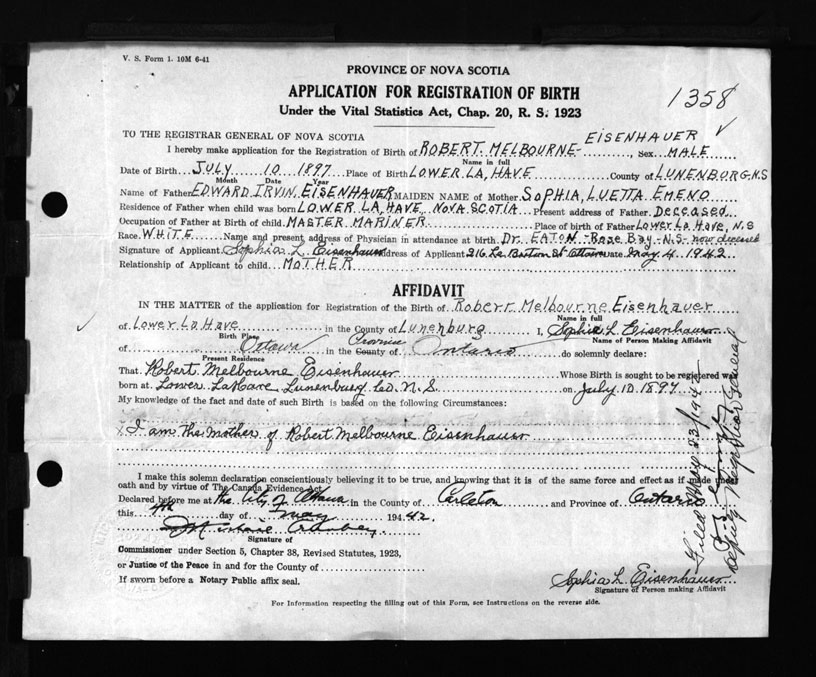 V. S. Form 1. 10M 6-41
PROVINCE OF NOVA SCOTIA
APPLICATION FOR REGISTRATION OF BIRTH
Under the Vital Statistics Act, Chap. 20, R. S. 1923
1358
TO THE REGISTRAR GENERAL OF NOVA SCOTIA
EISENHAUER ✓
I hereby make application for the Registration of Birth of ROBERT MELBOURNE- , Sex MALE
Name in full
Date of Birth JULY 10 1897 Place of Birth LOWER LA, HAVE County of LUNENBURG, N.S
Month Date Year
Name of Father EDWARD IRVIN EISENHAUER MAIDEN NAME of Mother SOPHIA, LUETTA EMENO
Residence of Father when child was born LOWER LA, HAVE NOVA SCOTIA Present address of Father Deceased
Occupation of Father at Birth of child MASTER MARINER Place of birth of Father Lower La Have, N.S
Race WHITE Name and present address of Physician in attendance at birth Dr. EATON - Rose Bay - N.S - now deceased
Signature of Applicant Sophia L. Eisenhauer Address of Applicant 216 St Ottawa Date May 4 1942
Relationship of Applicant to child MOTHER
AFFIDAVIT
IN THE MATTER of the application for Registration of the Birth of Robert Melbourne Eisenhauer
Name in full
of Lower La Have in the County of Lunenburg I, Sophia L Eisenhauer
Birth Place
Name of Person Making Affidavit
of Ottawa in the County of Province Ontario do solemnly declare:
Present Residence
That Robert Melbourne Eisenhauer Whose Birth is sought to be registered was
born at Lower LaHave Lunenburg Co. N.S. on July 10 1897
My knowledge of the fact and date of such Birth is based on the following Circumstances:
I am the mother of Robert Melbourne Eisenhauer
I make this solemn declaration conscientiously believing it to be true, and knowing that it is of the same force and effect as if made under
oath and by virtue of The Canada Evidence Act.
Declared before me at the City of Ottawa in the County of Carleton and Province of Ontario
this 4th day of May 194 42.
Signature of
Commissioner under Section 5, Chapter 38, Revised Statutes, 1923,
or Justice of the Peace in and for the County of
If sworn before a Notary Public affix seal.
Sophia L. Eisenhauer
Signature of Person making Affidavit
For Information respecting the filling out of this Form, see Instructions on the reverse side.
Filed May 23/1942
Deputy Registrar General